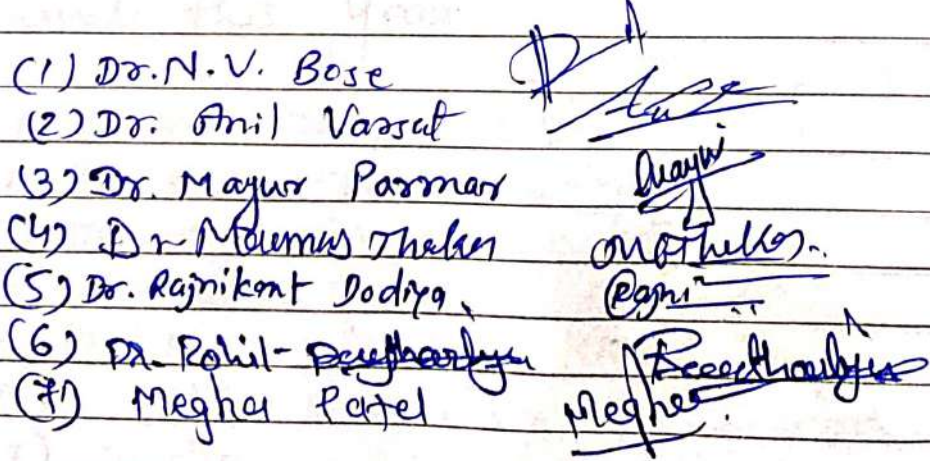 (1) Dr. N. V. Bose
(2) Dr. Anil Varsat
(3) Dr. Mayur Parmar Mayur
(4) Dr Maumus Thaker
(5) Dr. Rajnikant Dodiya Rajni
(6) Dr. Rohil
(7) Megha Patel Megha